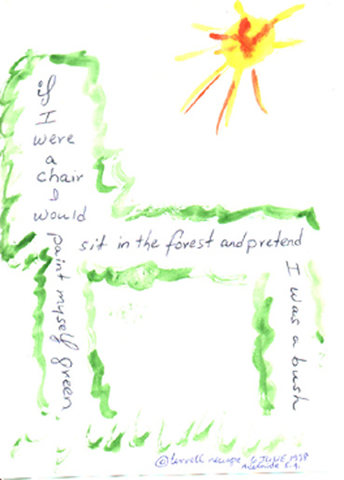 if
I
were
a
chair
I
would
paint myself green
sit in the forest and pretend
I was a bush
© terrell neuage 6 JUNE 1998
Adelaide S.A.